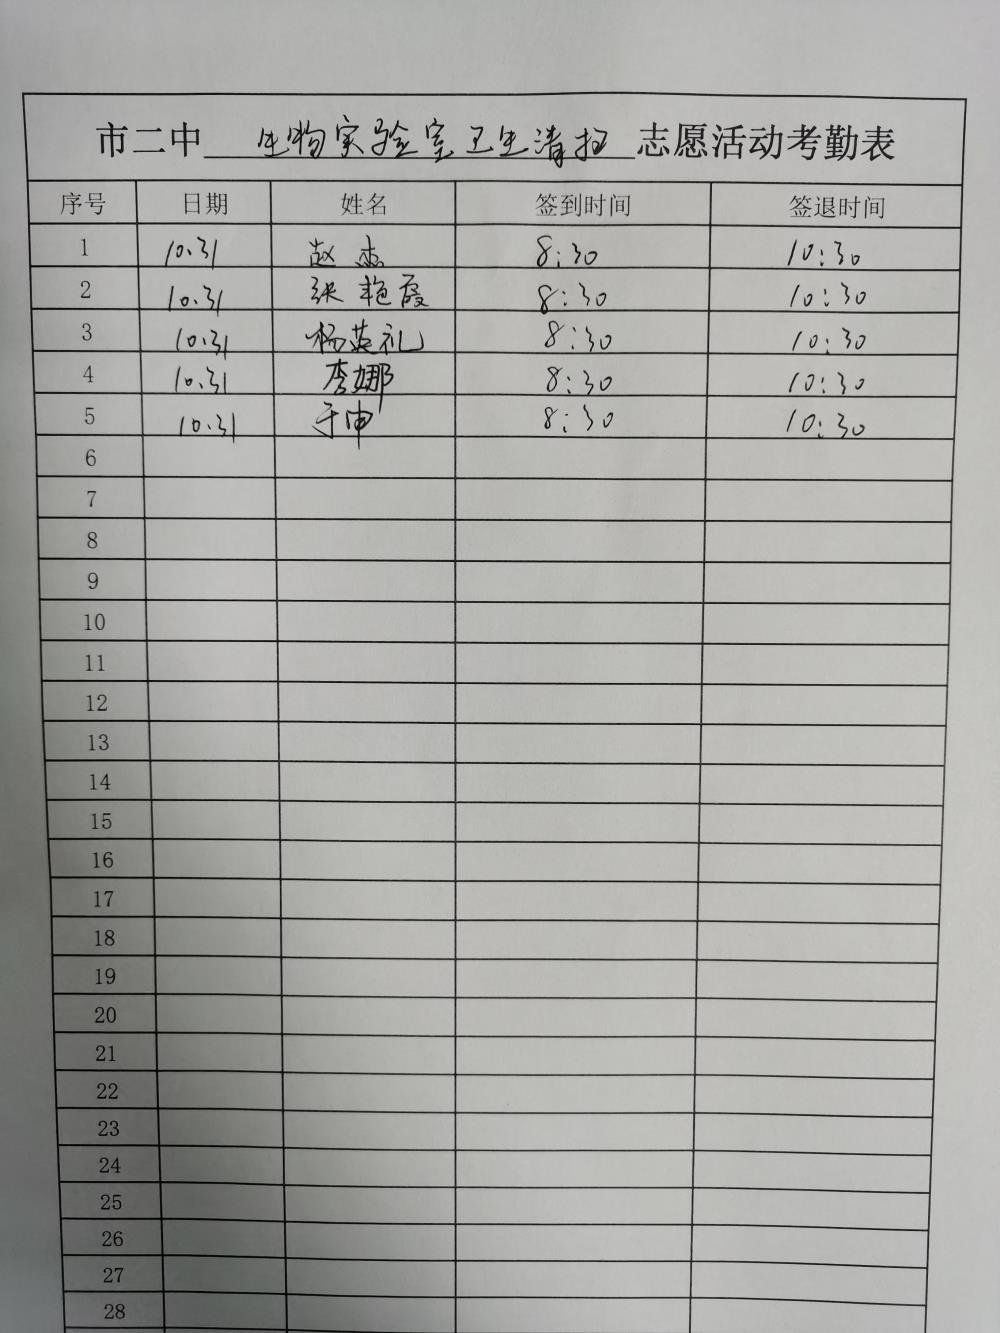 市二中 生物实验室卫生清扫 志愿活动考勤表
序号 日期 姓名 签到时间 签退时间
1 10.31 赵杰 8:30 10:30
2 10.31 张艳霞 8:30 10:30
3 10.31 杨英礼 8:30 10:30
4 10.31 李娜 8:30 10:30
5 10.31 于申 8:30 10:30
6
7
8
9
10
11
12
13
14
15
16
17
18
19
20
21
22
23
24
25
26
27
28